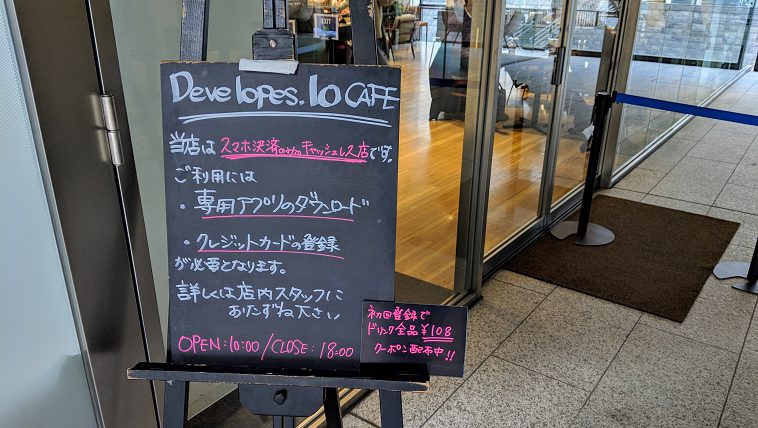 Developes.IO CAFE
当店はスマホ決済のみのキャッシュレス店です。
ご利用には
・専用アプリのダウンロード
・クレジットカードの登録
が必要となります。
詳しくは店内スタッフに
おたずね下さい
OPEN:10:00/CLOSE:18:00
初回登録で
ドリンク全品¥108
クーポン配布中!!
EXIT